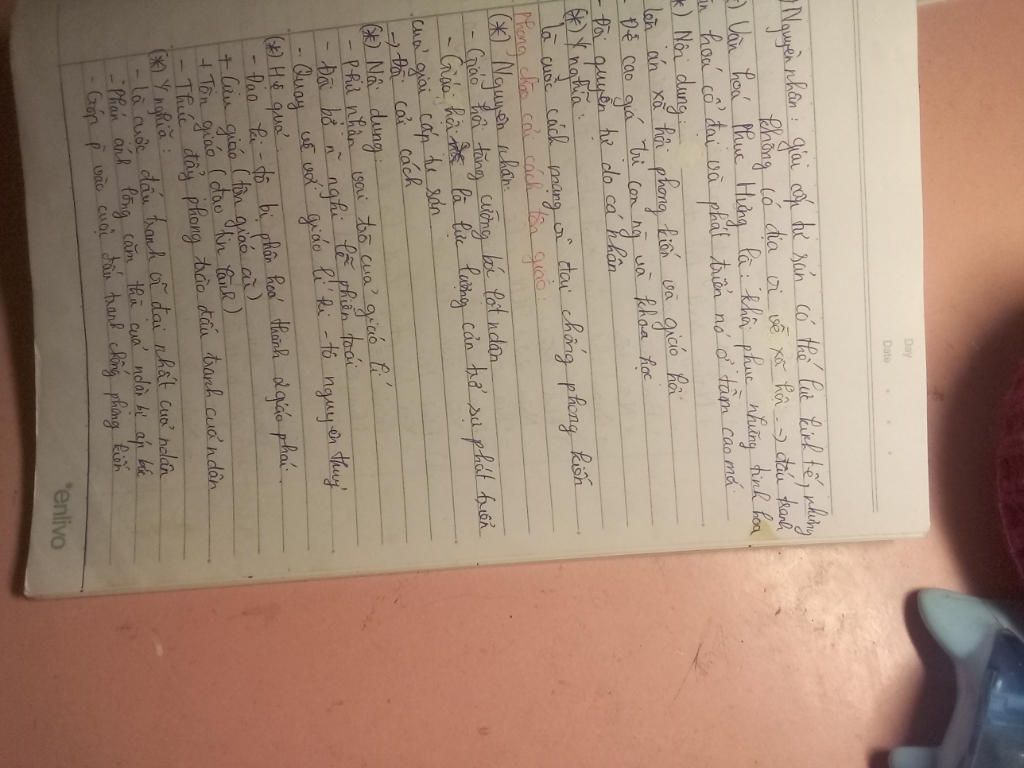 Day
Date
) Nguyên nhân: giai cấp tư sản có thế lực kinh tế, nhưng
không có địa vị về xã hội -> đấu tranh
) Văn hoá Phục Hưng là: khôi phục những tinh hoa
ăn hoá cổ đại và phát triển nó ở tầm cao mới
*) Nội dung
lên án xã hội phong kiến và giáo hội
- Đề cao giá trị con ng và khoa học
- Đòi quyền tự do cá nhân
(*) Ý nghĩa:
Là cuộc cách mạng vĩ đại chống phong kiến
Phong trào cải cách tôn giáo:
(*) Nguyên nhân:
- Giáo hội tăng cường bóc lột ndân
- Giáo hội là lực lượng cản trở sự phát triển
của giai cấp tư sản
-> Đòi cải cách
(*) Nội dung:
- Phủ nhận vai trò của giáo hội
- Đòi bỏ n nghi lễ phiền toái
- Quay về với giáo lí ki-tô nguyên thuỷ
(*) Hệ quả
- Đạo ki-tô bị phân hoá thành 2 giáo phái.
+ Cựu giáo (tôn giáo cũ)
+ Tân giáo (đạo tin lành)
- Thúc đẩy phong trào đấu tranh của ndân
(*) Ý nghĩa:
- Là cuộc đấu tranh vĩ đại nhất của ndân
- Phản ánh lòng căm thù của ndân bị áp bức
- Góp p vào cuộc đấu tranh chống phong kiến
enlivo